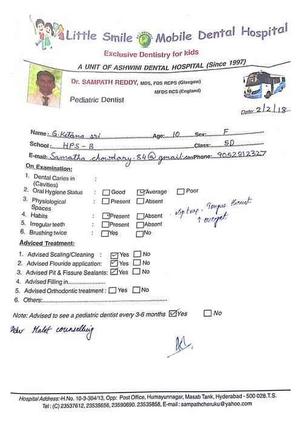 Little Smile Mobile Dental Hospital
Exclusive Dentistry for kids
A UNIT OF ASHWINI DENTAL HOSPITAL (Since 1997)
Dr. SAMPATH REDDY, MDS, FDS RCPS (Glasgow)
MFDS RCS (England)
Pediatric Dentist
Date: 2/2/18
Name: G. Kitana sri Age: 10 Sex: F
School: HPS - B Class: 5D
E-mail: Samatha chowdary.84@gmail.com Phone: 9052912327
On Examination:
1. Dental Caries in :
(Cavities)
2. Oral Hygiene Status : Good Average Poor
3. Physiological : Present Absent
Spaces
4. Habits : Present Absent
Lip &, Tongue thrust
5. Irregular teeth : Present Absent
6. Brushing twice : Yes No
Adviced Treatment:
1. Advised Scaling/Cleaning : Yes No
2. Advised Flouride application: Yes No
3. Advised Pit & Fissure Sealants: Yes No
4. Advised Filling in
5. Advised Orthodontic treatment : Yes No
6. Others:
Note: Advised to see a pediatric dentist every 3-6 months Yes No
Adv Habit counselling
Hospital Address: H.No. 10-3-304/13, Opp: Post Office, Humayunnagar, Masab Tank, Hyderabad - 500 028.T.S.
Tel: (C) 23537612, 23535658, 23590690, 23535858, E-mail : sampathcheruku@yahoo.com